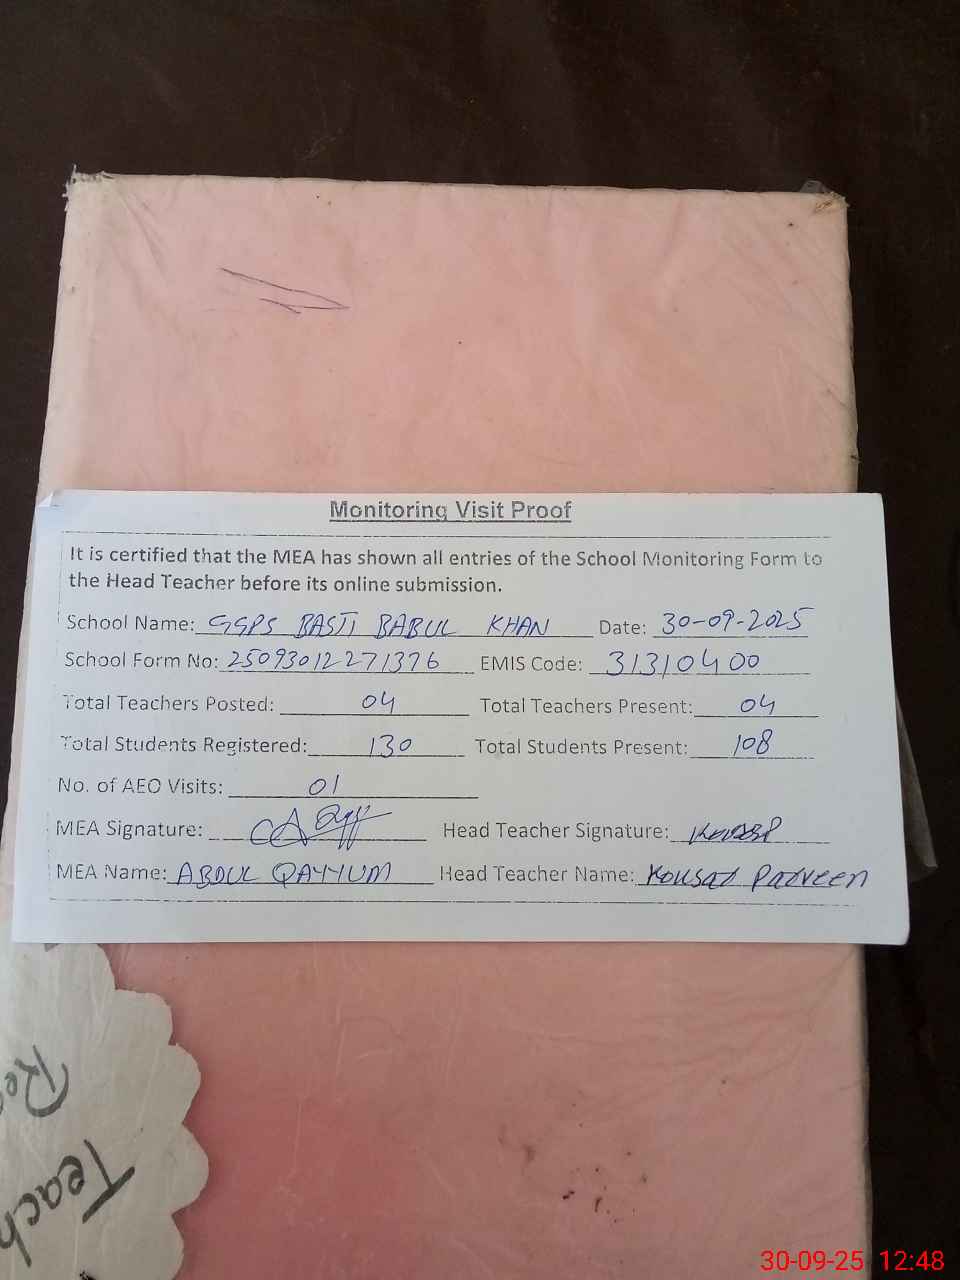 Monitoring Visit Proof
It is certified that the MEA has shown all entries of the School Monitoring Form to
the Head Teacher before its online submission.
School Name: GGPS BASTI BABUL KHAN Date: 30-09-2025
School Form No: 25093012271376 EMIS Code: 31310400
Total Teachers Posted: 04 Total Teachers Present: 04
Total Students Registered: 130 Total Students Present: 108
No. of AEO Visits: 01
MEA Signature: Head Teacher Signature:
MEA Name: ABDUL QAYYUM Head Teacher Name: Kousar Parveen
Teach
30-09-25 12:48